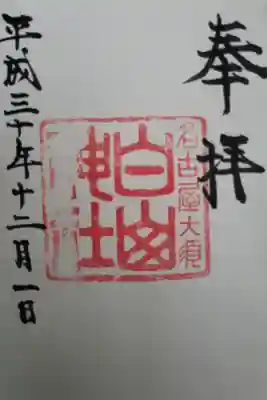 奉拝
名古屋大須
平成三十年十二月一日